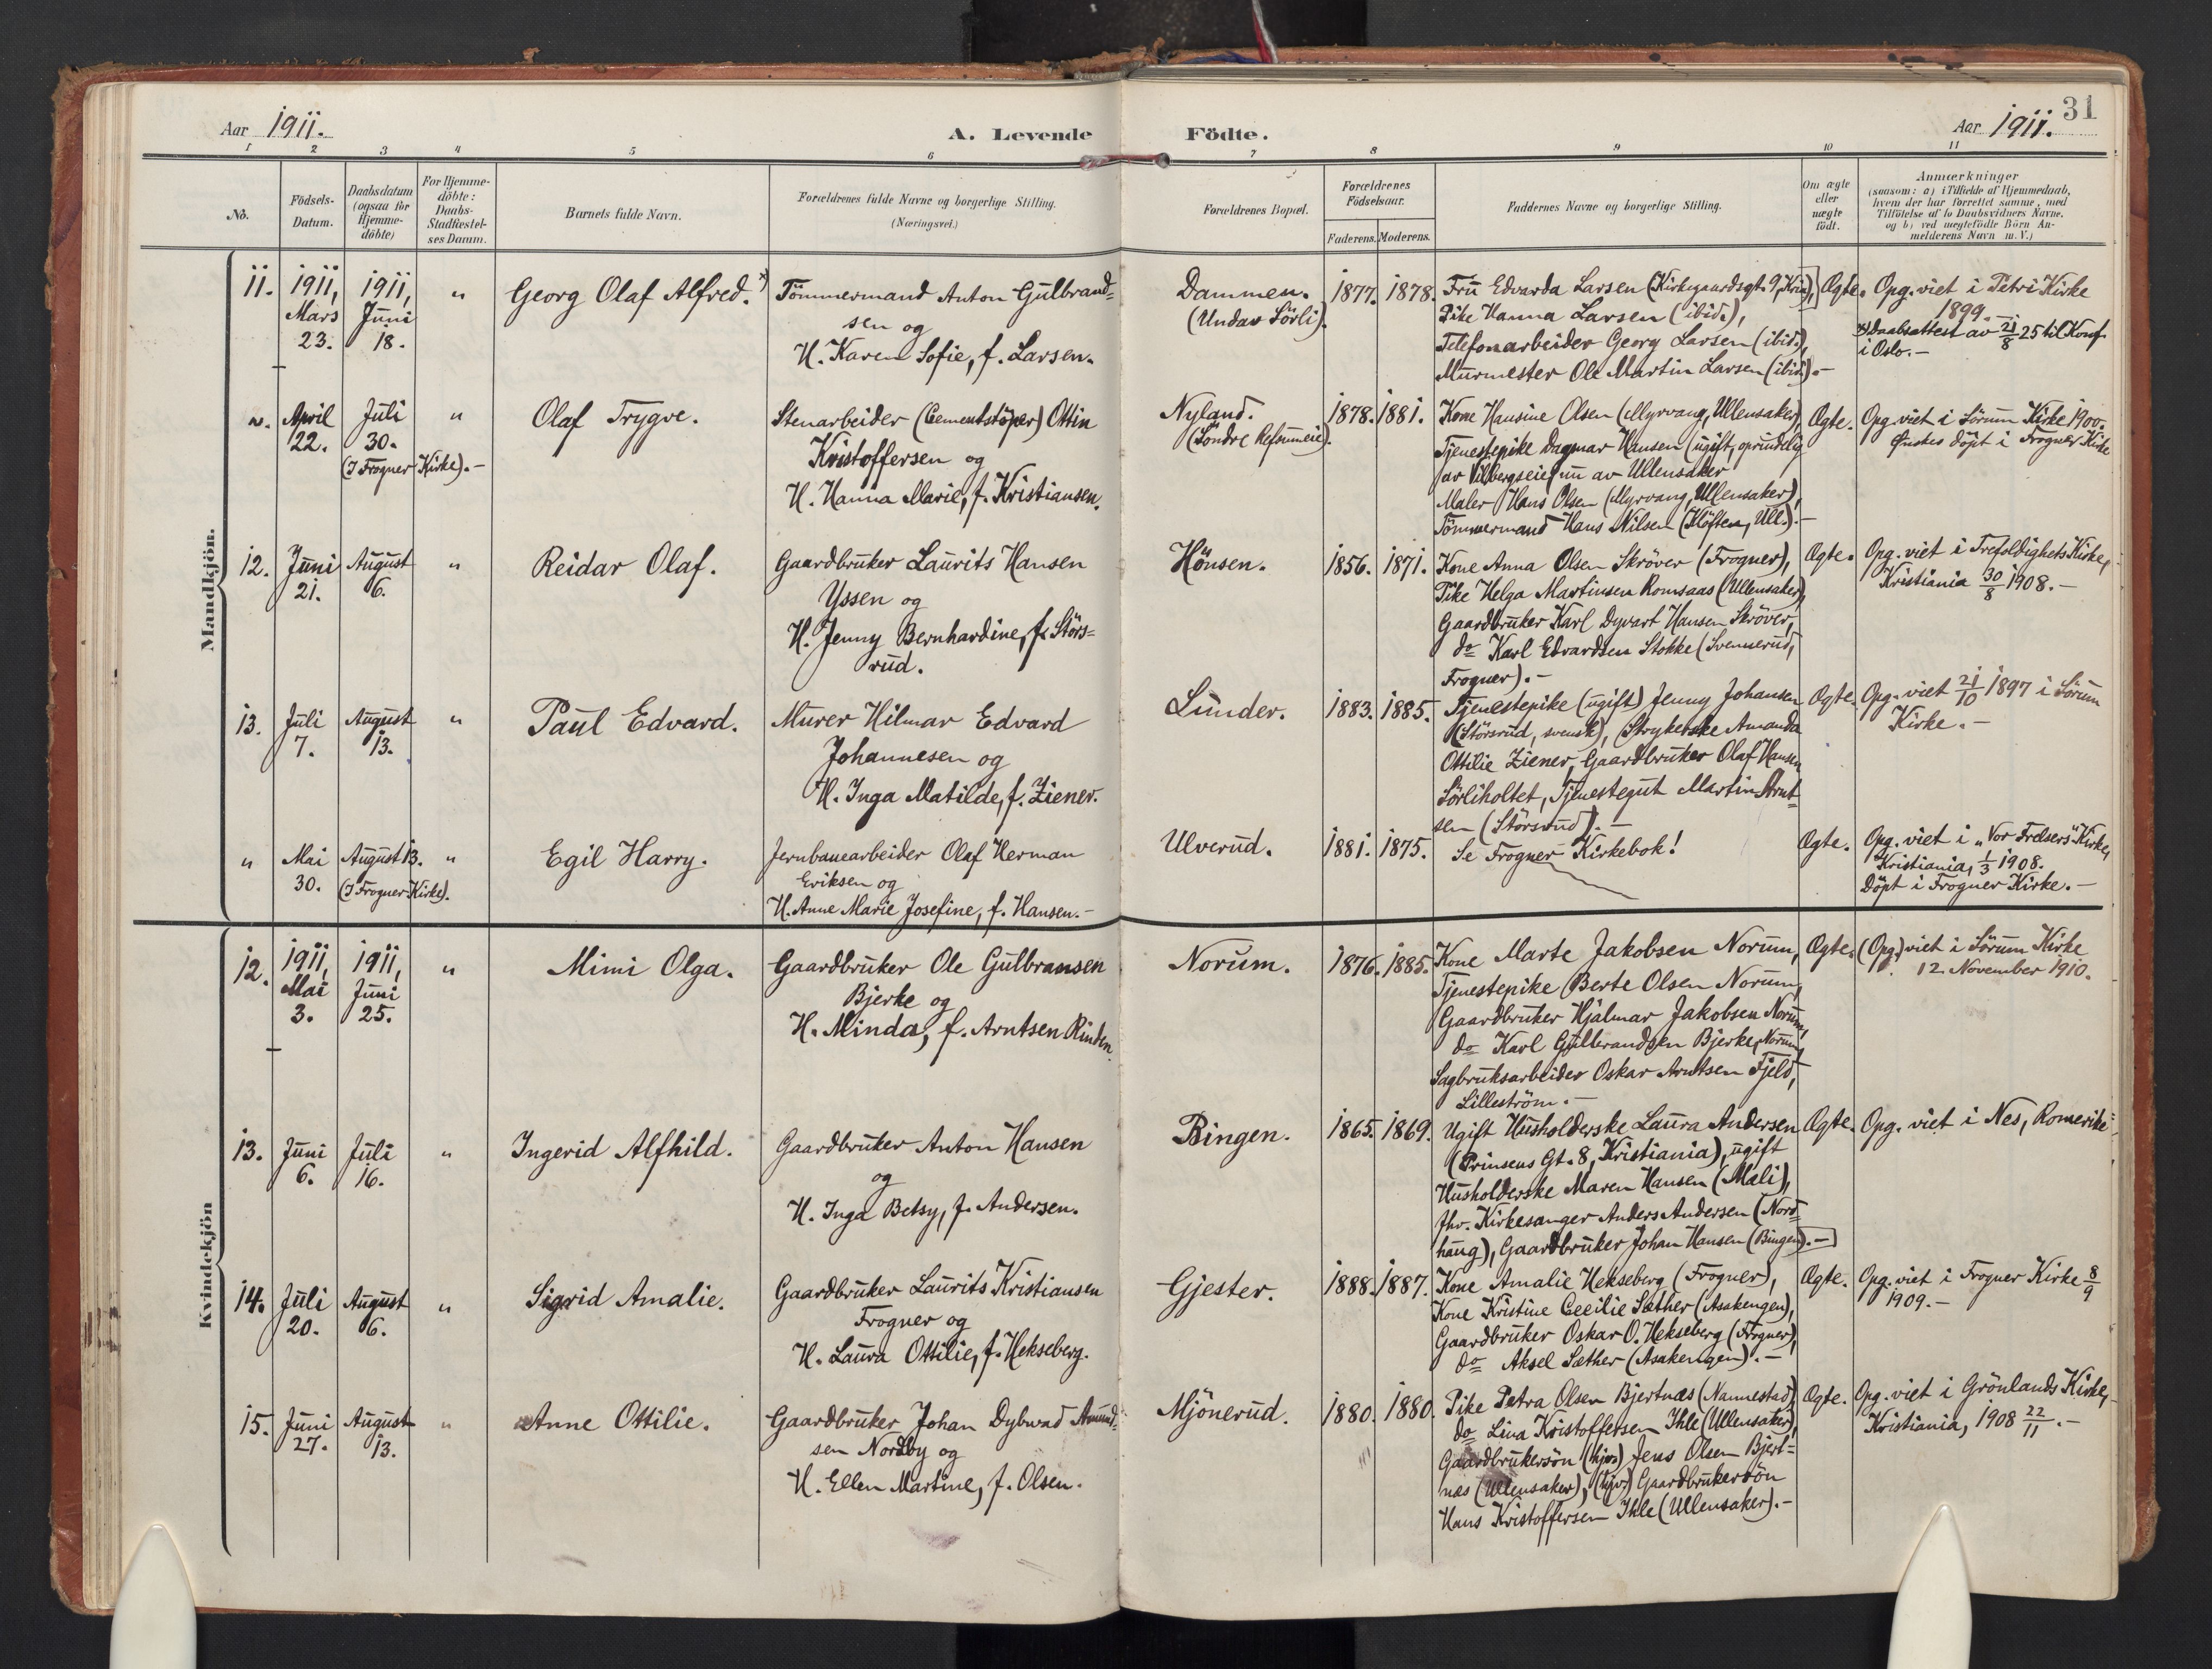 31
Aar 1911.
A. Levende Födte.
Aar 1911.
1 2 3 4 5 6 7 8 9 10 11
No.
Födsels-
Datum.
Daabsdatum
(ogsaa for
Hjemme-
döbte)
For Hjemme-
döbte:
Daabs-
Stadfæstel-
ses Datum.
Barnets fulde Navn.
Forældrenes fulde Navne og borgerlige Stilling.
(Næringsvei.)
Forældrenes Bopæl.
Forældrenes
Födselsaar.
Faderens. Moderens.
Faddernes Navne og borgerlige Stilling.
Om ægte
eller
uægte
födt.
Anmærkninger
(saasom: a) i Tilfælde af Hjemmedaab,
hvem der har forrettet samme, med
Tilföielse af to Daabsvidners Navne.
og b) ved uægtefödte Börn An-
melderens Navn m. V.)
Mandkjön.
11.
1911,
Mars
23.
1911,
Juni
18.
"
Georg Olaf Alfred. x)
Tömmermand Anton Gulbrand=
sen og
H. Karen Sofie, f. Larsen.
Dammen.
(Undas Sörli).
1877. 1878.
Fru Edvarda Larsen (Kirkegaardsgt. 9, Kria),
Pike Hanna Larsen (ibid.),
Telefonarbeider Georg Larsen (ibid.),
Murmester Ole Martin Larsen (ibid.).-
Ægte.
Opg. viet i Petri Kirke
1899.-
x) Daabsattest av 21/8 25 til Konf.
i Oslo.-
".
April
22.
Juli
30.
(I Frogner Kirke).-
"
Olaf Trygve.
Stenarbeider (Cementstöper) Ottin
Kristoffersen og
H. Hanna Marie, f. Kristiansen.
Nyland.
(Söndre Refsumeie).
1878. 1881.
Kone Hansine Olsen (Myrvang, Ullensaker),
Tjenestepike Dagmar Hansen (ugift, oprindelig
av Vilbergseie) nu av Ullensaker
Maler Hans Olsen (Myrvang, Ullensaker),
Tömmermand Hans Nilsen (Klöften, Ull.).-
Ægte.
Opg. viet i Sörum Kirke 1900.
Önskes döpt i Frogner Kirke
12.
Juni
21.
August
6.
"
Reidar Olaf.
Gaardbruker Laurits Hansen
Yssen og
H. Jenny Bernhardine, f. Störs=
rud.
Hönsen.
1856. 1871.
Kone Anna Olsen Skröver (Frogner),
Pike Helga Martinsen Romsaas (Ullensaker),
Gaardbruker Karl Dyvart Hansen Skröver,
do Karl Edvardsen Stokke (Svennerud,
Frogner).-
Ægte.
Opg. viet i Trefoldighets Kirke,
Kristiania 30/8 1908.-
13.
Juli
7.
August
13.
"
Paul Edvard.
Murer Hilmar Edvard
Johannesen og
H. Inga Matilde, f. Ziener.
Lunder.
1883. 1885.
Tjenestepike (ugift) Jenny Johansen
(Störsrud, svensk), Strykerske Amanda
Ottilie Ziener, Gaardbruker Olaf Hansen
Sörliholtet, Tjenestegut Martin Arnt=
sen (Störsrud).-
Ægte.
Opg. viet 21/10 1897 i Sörum
Kirke.-
"
Mai
30.
August 13.
(I Frogner Kirke).
"
Egil Harry.
Jernbanearbeider Olaf Herman
Eriksen og
H. Anne Marie Josefine, f. Hansen.-
Ulverud.
1881. 1875.
Se Frogner Kirkebok!
Ægte.
Opg. viet i "Vor Frelsers" Kirke,
Kristiania, 1/3 1908.
Döpt i Frogner Kirke.-
Kvindekjön
12.
1911,
Mai
3.
1911,
Juni
25.
"
Mimi Olga.
Gaardbruker Ole Gulbransen
Bjerke og
H. Minda, f. Arntsen Rinden.
Norum.
1876. 1885.
Kone Marte Jakobsen Norum,
Tjenestepike Berte Olsen Norum,
Gaardbruker Hjalmar Jakobsen Norum,
do Karl Gulbrandsen Bjerke, Norum,
Sagbruksarbeider Oskar Arntsen Fjeld,
Lilleström.-
Ægte.
(Opg.) viet i Sörum Kirke
12. November 1910.
13.
Juni
6.
Juli
16.
"
Ingerid Alfhild.
Gaardbruker Anton Hansen
og
H. Inga Betsy, f. Andersen.
Bingen.
1865. 1869.
Ugift Husholderske Laura Andersen
(Prinsens Gt. 8, Kristiania), ugift
Husholderske Maren Hansen (Mæli),
fhv. Kirkesanger Anders Andersen (Nord=
haug), Gaardbruker Johan Hansen (Bingen).-
Ægte.
Opg. viet i Nes, Romerike
14.
Juli
20.
August
6.
"
Sigrid Amalie.
Gaardbruker Laurits Kristiansen
Frogner og
H. Laura Ottilie, f. Hekseberg.
Gjester.
1888. 1887.
Kone Amalie Hekseberg (Frogner),
Kone Kristine Cecilie Sæther (Asakengen),
Gaardbruker Oskar O. Hekseberg (Frogner),
do Aksel Sæther (Asakengen).-
Ægte.
Opg. viet i Frogner Kirke 8/9
1909.-
15.
Juni
27.
August
13.
"
Anne Ottilie.
Gaardbruker Johan Dybwad Amund=
sen Nordby og
H. Ellen Martine, f. Olsen.
Mjönerud.
1880. 1880.
Pike Petra Olsen Bjertnæs (Nannestad),
do Lina Kristoffersen Ihle (Ullensaker),
Gaardbrukersön (hjv.) Jens Olsen Bjert=
næs (Ullensaker), (hjv.) Gaardbrukersön
Hans Kristoffersen Ihle (Ullensaker).-
Ægte.
Opg. viet i Grönlands Kirke,
Kristiania, 1908 22/11.-